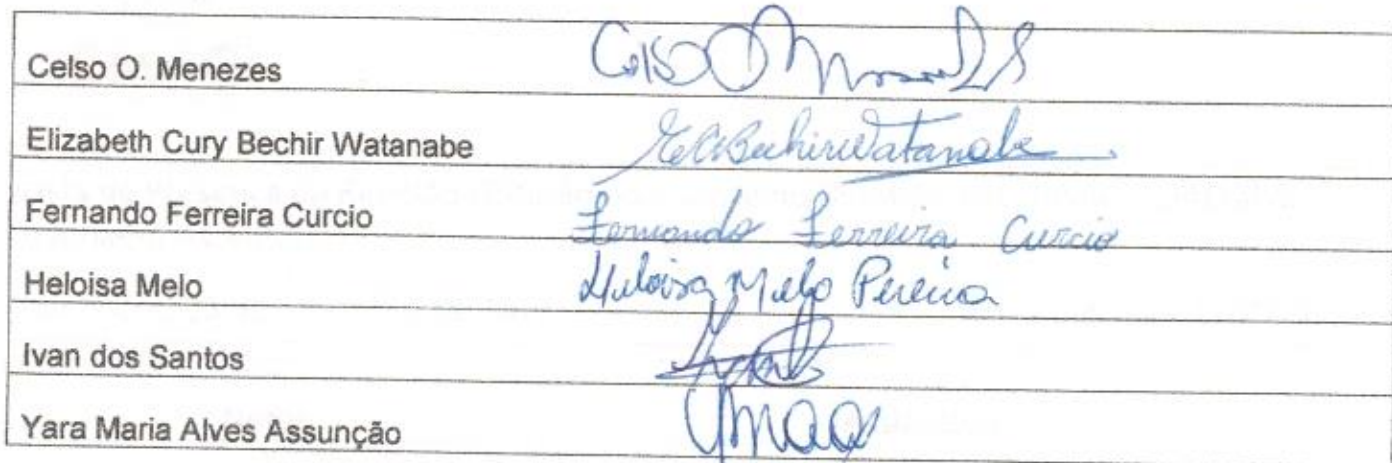 Celso O. Menezes Celso O Menezes
Elizabeth Cury Bechir Watanabe ECBechirWatanabe
Fernando Ferreira Curcio Fernando Ferreira Curcio
Heloisa Melo Heloisa Melo Pereira
Ivan dos Santos
Yara Maria Alves Assunção